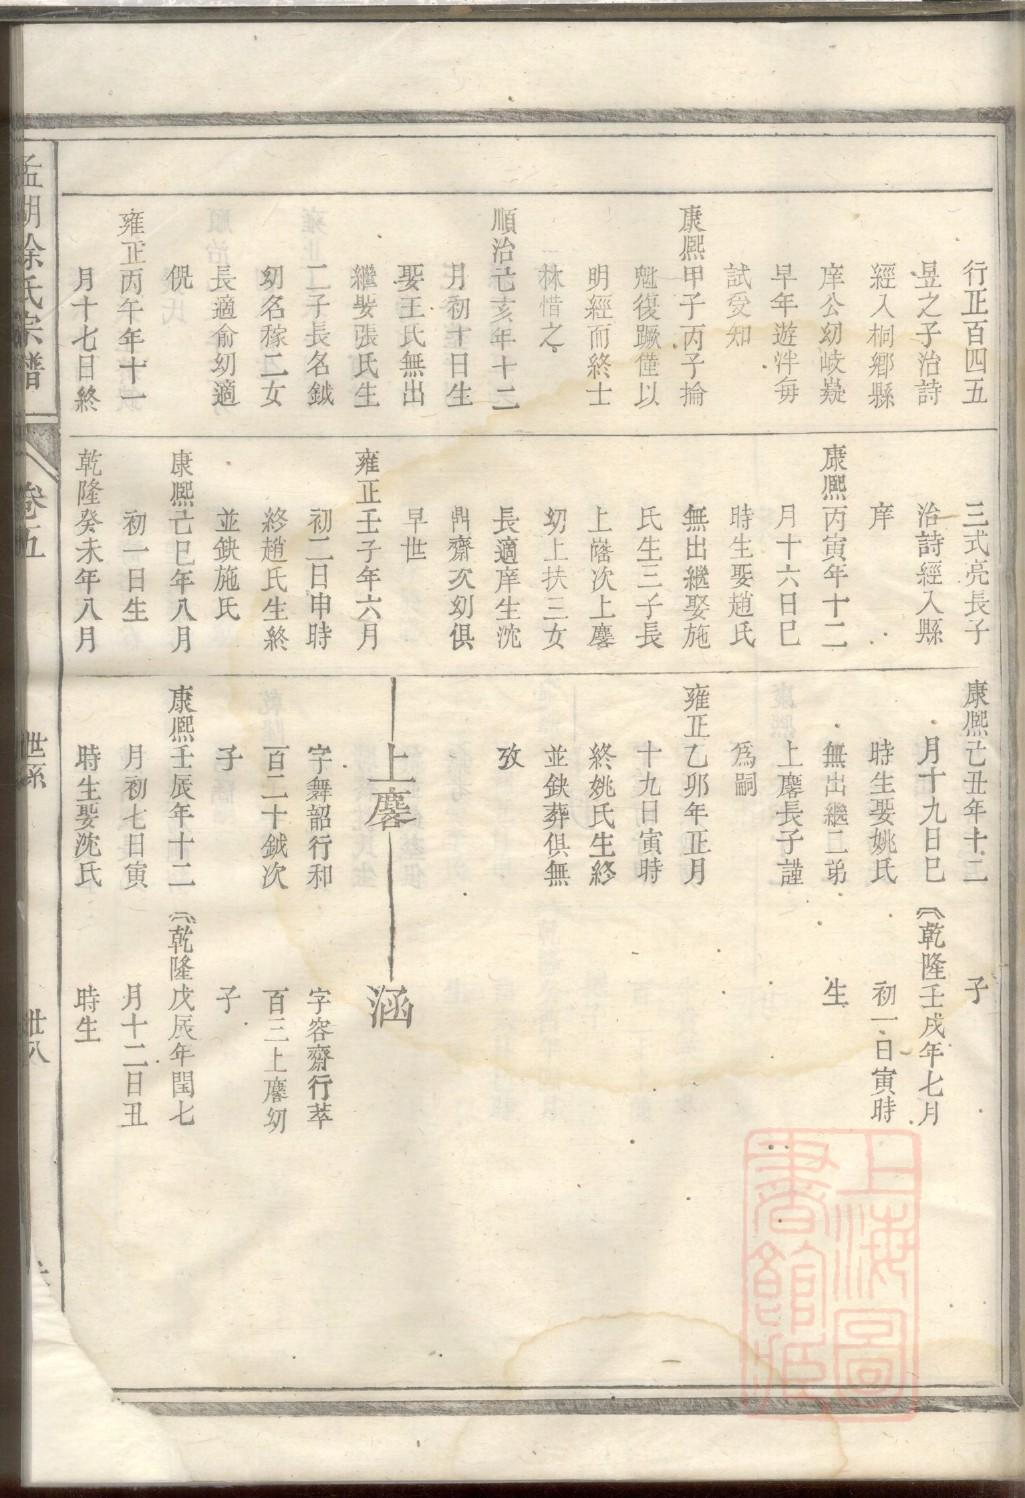 行正百四五
昱之子治詩
經入桐鄉縣
庠公幼岐嶷
早年遊泮每
試受知
康熙甲子丙子掄
魁復蹶僅以
明經而終士
林惜之
順治己亥年十二
月初十日生
娶王氏無出
繼娶張氏生
二子長名鉞
幼名稼二女
長適俞幼適
倪
雍正丙午年十一
月十七日終
三式亮長子
治詩經入縣
庠
康熙丙寅年十二
月十六日巳
時生娶趙氏
無出繼娶施
氏生三子長
上蓭次上麐
幼上扶三女
長適庠生沈
鼎齋次幼俱
早世
雍正壬子年六月
初二日申時
終趙氏生終
並鈌施氏
康熙己巳年八月
初一日生
乾隆癸未年八月
康熙己丑年十二
月十九日巳
時生娶姚氏
無出繼二弟
上麐長子謹
爲嗣
雍正乙卯年正月
十九日寅時
終姚氏生終
並鈌葬俱無
攷
上麐
字舞韶行和
百二十鉞次
子
康熙壬辰年十二
月初七日寅
時生娶沈氏
子
乾隆壬戌年七月
初一日寅時
生
涵
字容齋行萃
百三上麐幼
子
乾隆戊辰年閏七
月十二日丑
時生
孟湖徐氏宗譜
卷五
世系
上海圖書館藏